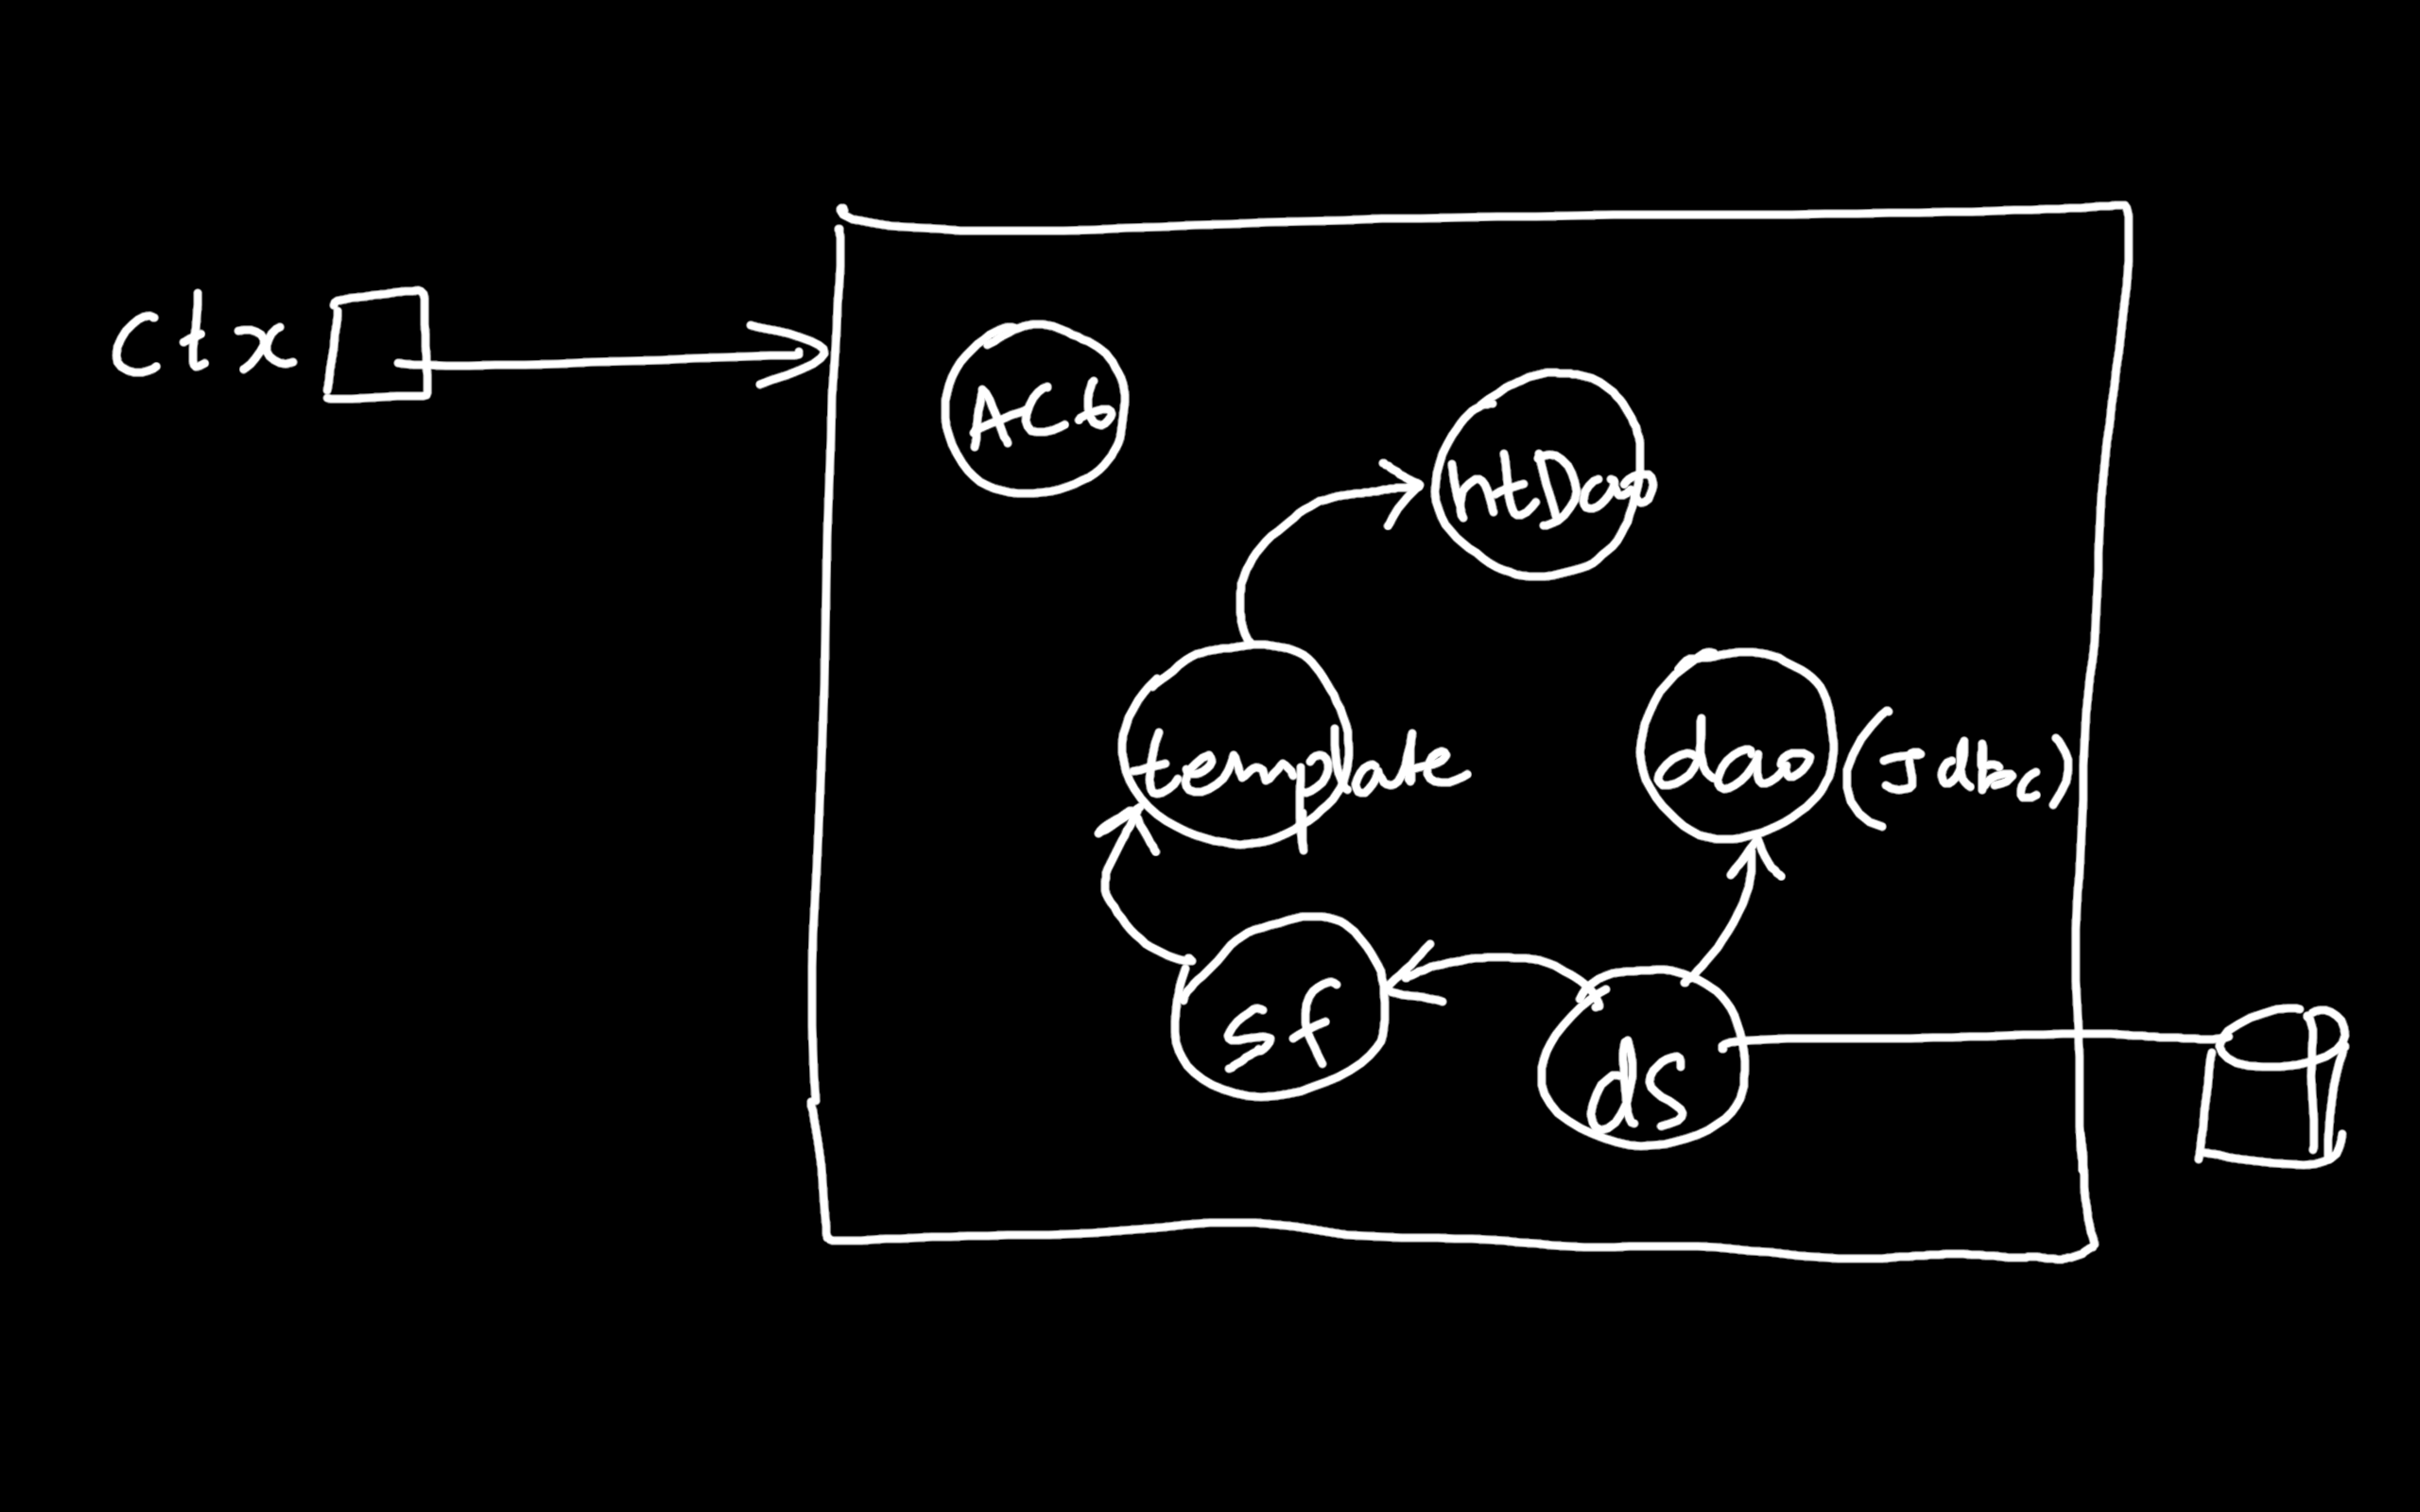 Ctx
AC6
htDao
template
dao (Jdbc)
sf
ds